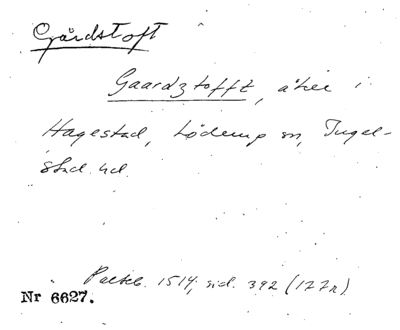 Gårdstoft
Gaardztofft, åker i
Hagestad, Löderup sn, Ingel-
stad hd.
Palteb. 1514, sid. 392 (177r)
Nr 6627.